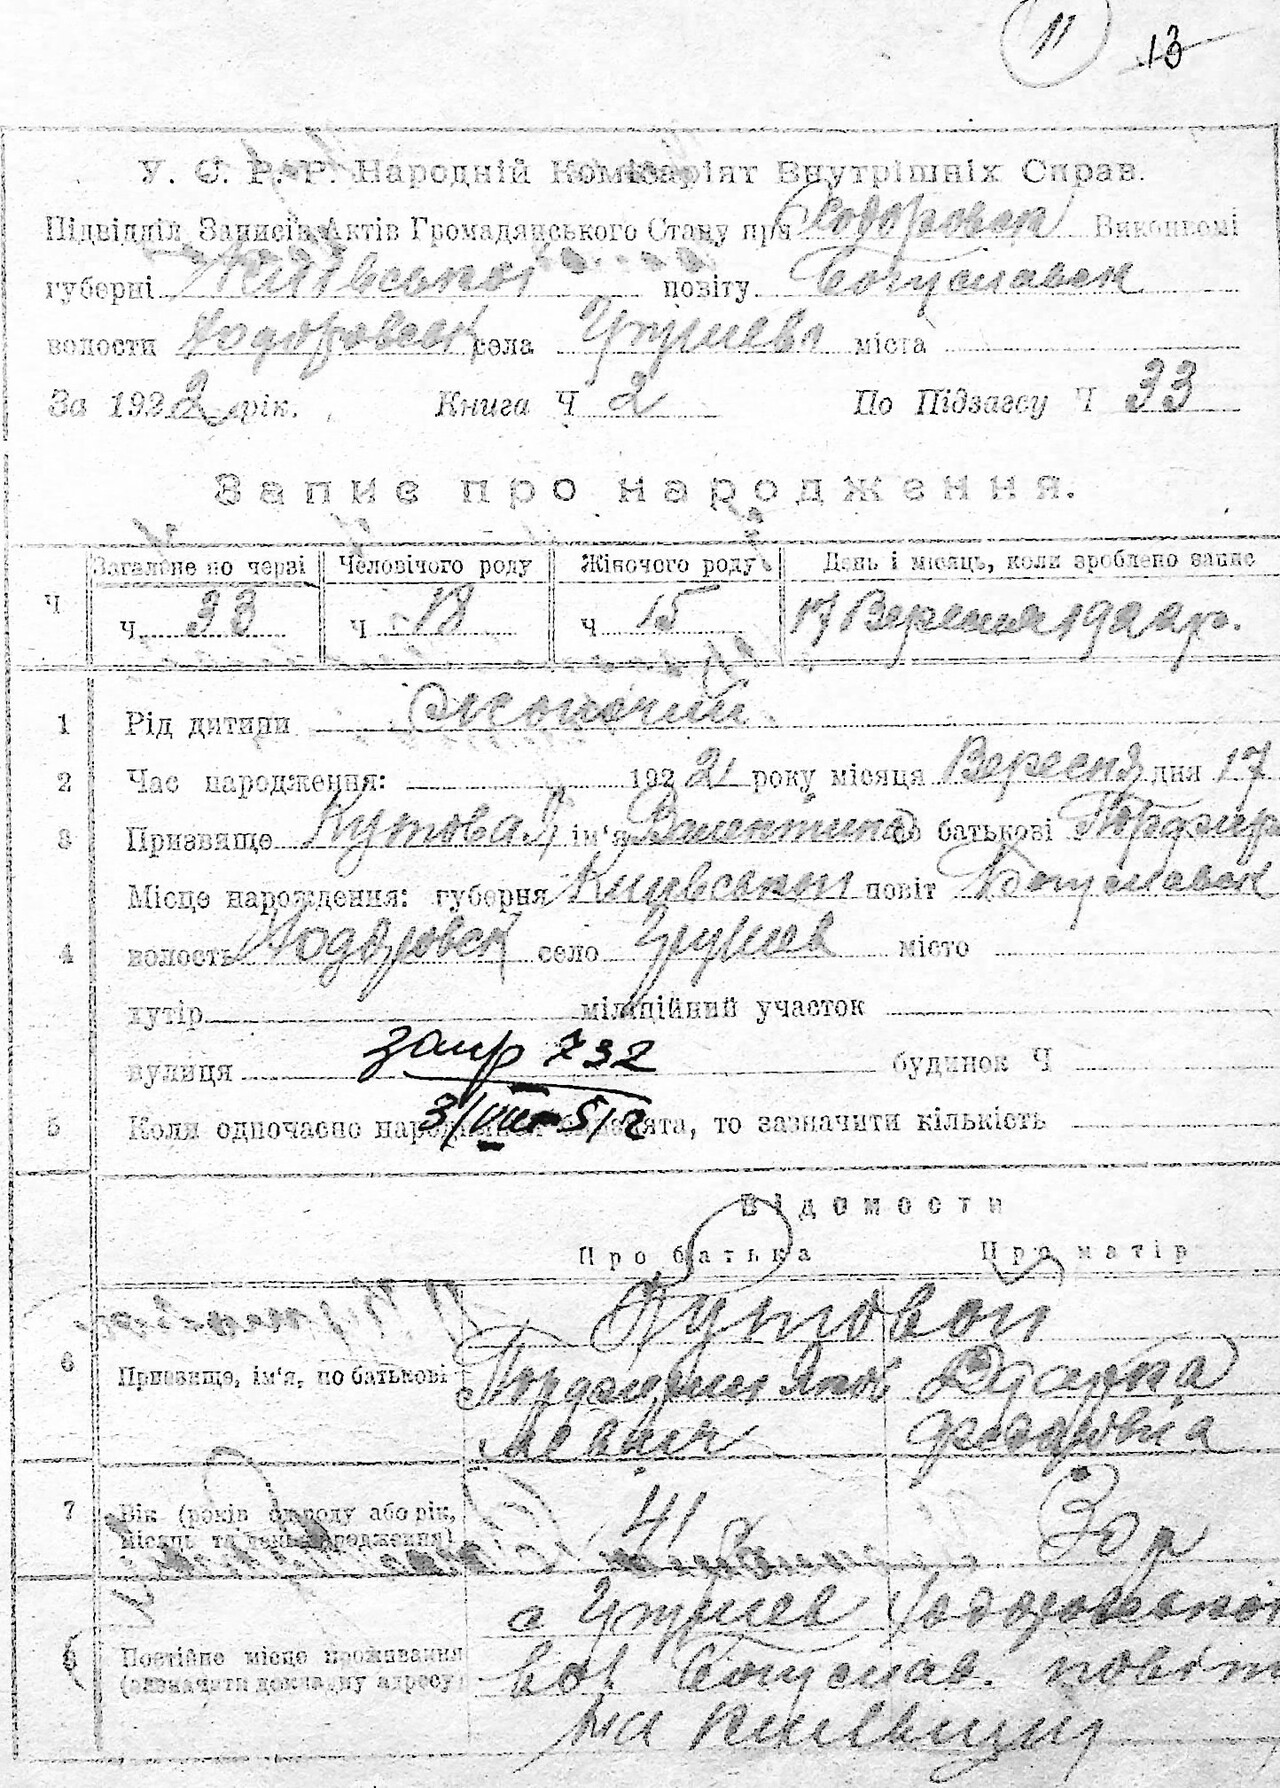 11 13
У. С. Р. Р. Народній Комісаріят Внутрішніх Справ.
Підвідділ Записів Актів Громадянського Стану при Ходоровск Виконкомі
губерні Київської повіту Богуславск
волости Ходоровск села міста
За 1922 рік. Книга Ч 2 По Підзагсу Ч 33
Запис про народження.
Загальне по черзі Человічого роду Жіночого роду День і місяць, коли зроблено запис
Ч ч. 33 ч 18 ч 15 17 Вересня 1922 р.
1 Рід дитини жоночий
2 Час народження: 192 року місяця Вересня дня 17
3 Призвище Кутовая ім'я Валентина по батькові
Місце нарождення: губерня Київської повіт Богуславск
4 волость Ходоровск село місто
хутір міліційний участок
вулиця будинок Ч
запр 732
5 Коли одночасно народилися близнята, то зазначити кількість
3/VIII-52
Відомости
Про батька Про матір
Кутовой
6 Призвище, ім'я, по батькові
Федоровна
7 Вік (років од роду або рік, місяць та день народження) 41 30 р
с Ходоровской
Постійне місце проживання (зазначити докладну адресу) вол Богуслав. повіт
на Київщині